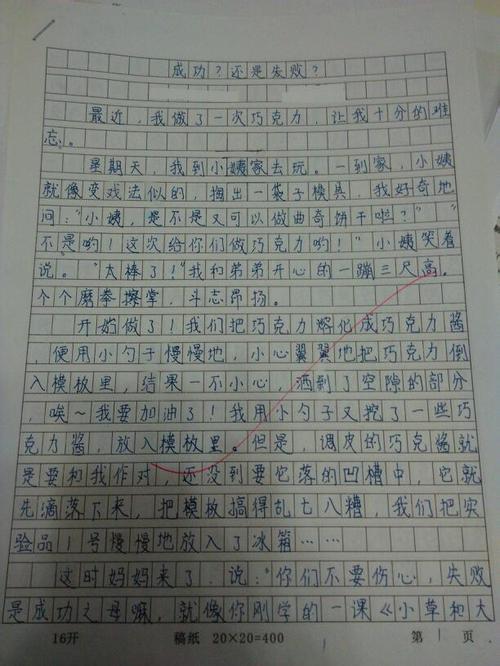 成功？还是失败？
最近，我做了一次巧克力，让我十分的难
忘。
星期天，我到小姨家去玩。一到家，小姨
就像变戏法似的，掏出一袋子模具，我好奇地
问：“小姨，是不是又可以做曲奇饼干啦？”“
不是哟！这次给你们做巧克力哟！”小姨笑着
说。“太棒了！”我和弟弟开心的一蹦三尺高。
个个磨拳擦掌，斗志昂扬。
开始做了！我们把巧克力熔化成巧克力酱
，便用小勺子慢慢地，小心翼翼地把巧克力倒
入模板里，结果一不小心，洒到了空隙的部分
，唉～我要加油了！我用小勺子又挖了一些巧
克力酱，放入模板里。但是，调皮的巧克酱就
是要和我作对，还没到要它落的凹槽中，它就
先滴落下来，把模板搞得乱七八糟，我们把实
验品1号慢慢地放入了冰箱……
这时妈妈来了，说：“你们不要伤心，失败
是成功之母嘛，就像你刚学的一课《小草和大
16开 稿纸 20×20=400 第 1 页